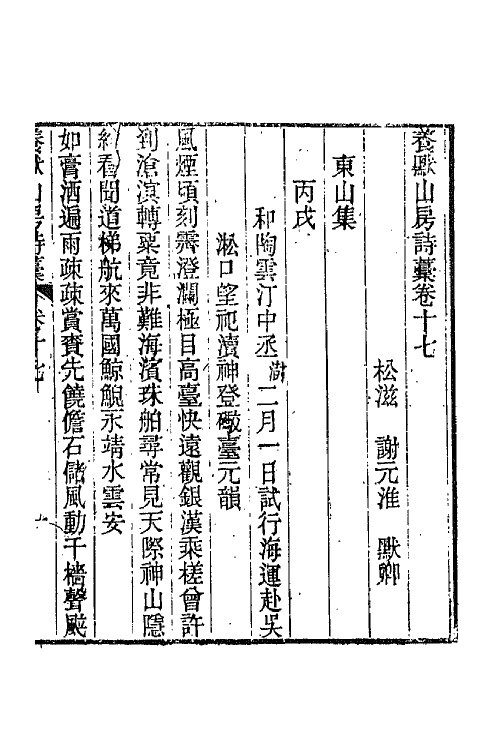 養默山房詩藁卷十七
松滋　謝元淮　默卿
東山集
丙戌
和陶雲汀中丞澍二月一日試行海運赴吳
淞口望祀瀆神登礮臺元韻
風煙頃刻霽澄瀾極目高臺快遠觀銀漢乘槎曾許
到滄溟轉粟竟非難海濱珠舶尋常見天際神山隱
約看聞道梯航來萬國鯨鯢永靖水雲安
如膏洒遍雨疎疎賞賚先饒儋石儲風動千檣聲颭
養默山房詩藁　卷十七